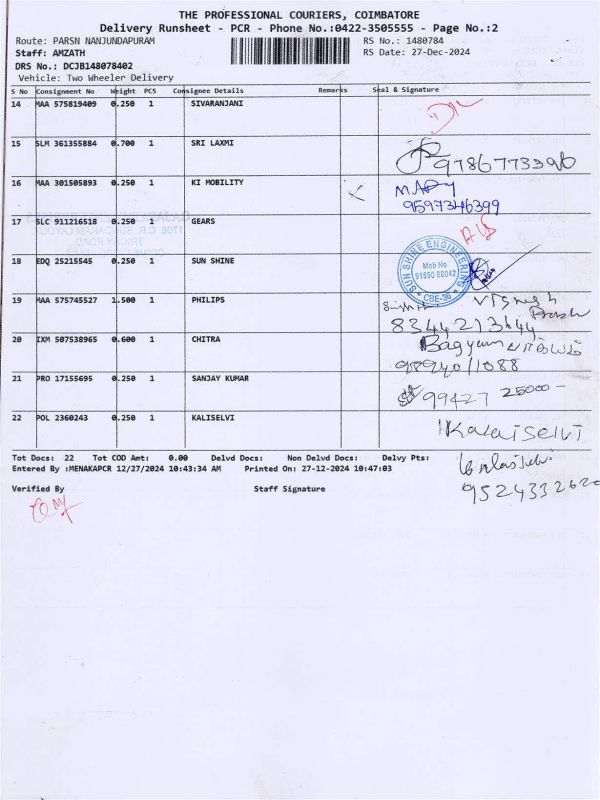 THE PROFESSIONAL COURIERS, COIMBATORE
Delivery Runsheet - PCR - Phone No.:0422-3505555 - Page No.:2
Route: PARSN NANJUNDAPURAM RS No.: 1480784
Staff: AMZATH RS Date: 27-Dec-2024
DRS No.: DCJB148078402
Vehicle: Two Wheeler Delivery
S No Consignment No Weight PCS Consignee Details Remarks Seal & Signature
14 MAA 575819409 0.250 1 SIVARANJANI
15 SLM 361355884 0.700 1 SRI LAXMI
16 MAA 301505893 0.250 1 KI MOBILITY
9597346399
17 SLC 911216518 0.250 1 GEARS
18 EDQ 25215545 0.250 1 SUN SHINE
SUN SHINE ENGINEERING
Mob No
91590 88042
CBE-36
19 MAA 575745527 1.500 1 PHILIPS
8344213644
20 IXM 507538965 0.600 1 CHITRA
21 PRO 17155695 0.250 1 SANJAY KUMAR
99427 25000
22 POL 2360243 0.250 1 KALISELVI
KalaiSelvi
Tot Docs: 22 Tot COD Amt: 0.00 Delvd Docs: Non Delvd Docs: Delvy Pts:
Entered By :MENAKAPCR 12/27/2024 10:43:34 AM Printed On: 27-12-2024 10:47:03
Verified By Staff Signature